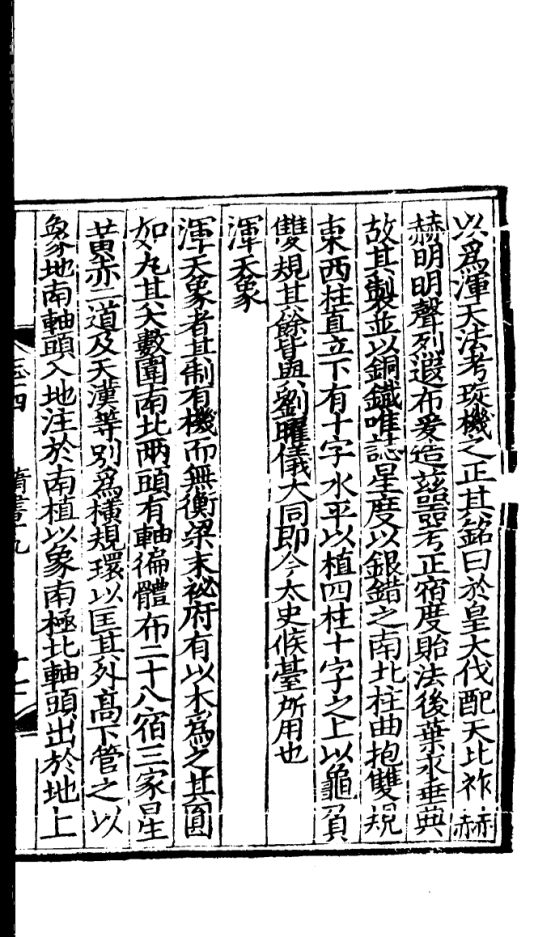 以爲渾天法考琁機之正其銘曰於皇大代配天比祚赫
赫明明聲列遐布爰造茲器考正宿度貽法後葉永垂典
故其製並以銅鐵唯誌星度以銀錯之南北柱曲抱雙規
東西柱直立下有十字水平以植四柱十字之上以龜負
雙規其餘皆與劉曜儀大同即今太史候臺所用也
渾天象
渾天象者其制有機而無衡梁末祕府有以木爲之其圓
如丸其大數圍南北兩頭有軸徧體布二十八宿三家星
黃赤二道及天漢等別爲橫規環以匡其外高下管之以
象地南軸頭入地注於南植以象南極北軸頭出於地上